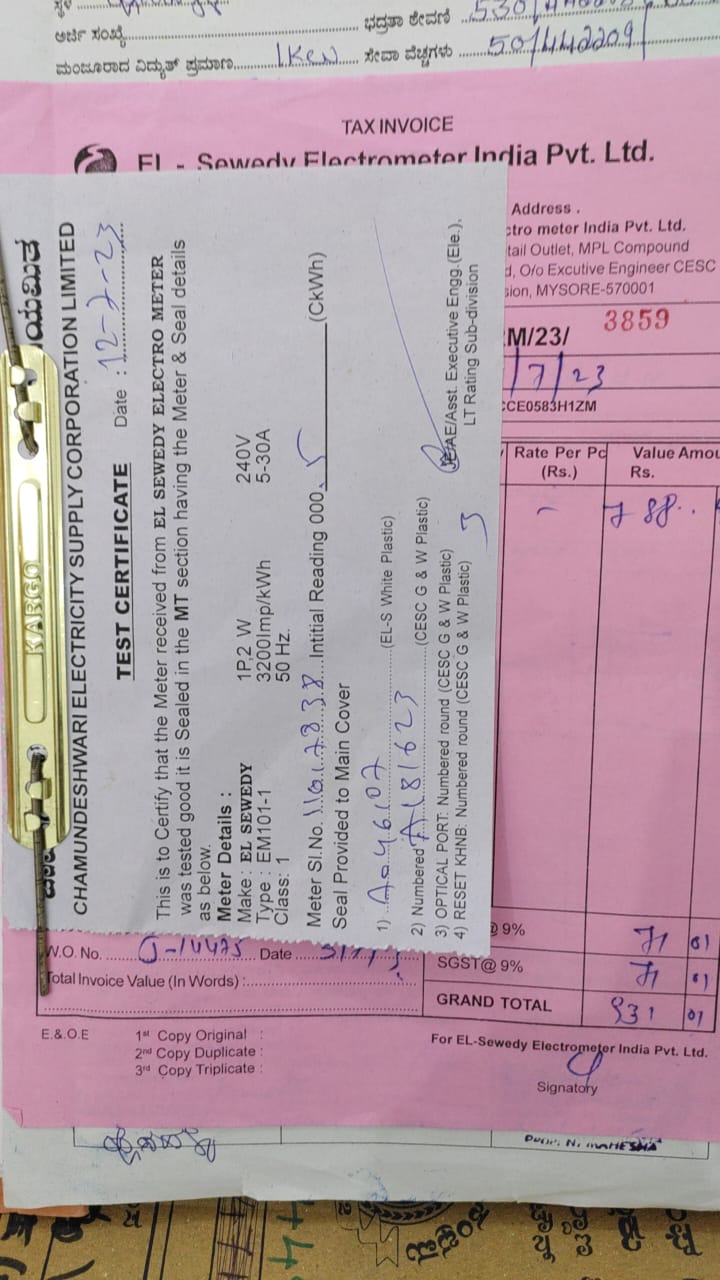 ಅರ್ಜಿ ಸಂಖ್ಯೆ
ಭದ್ರತಾ ಠೇವಣಿ
ಮಂಜೂರಾದ ವಿದ್ಯುತ್ ಪ್ರಮಾಣ 1KW ಸೇವಾ ವೆಚ್ಚಗಳು 50/442209/
TAX INVOICE
EL - Sewedy Electrometer India Pvt. Ltd.
Address .
ctro meter India Pvt. Ltd.
tail Outlet, MPL Compound
d, O/o Excutive Engineer CESC
sion, MYSORE-570001
M/23/ 3859
/7/23
CCE0583H1ZM
Rate Per Pc (Rs.) Value Amou Rs.
- 788..
@ 9% 71 01
SGST@ 9% 71 01
GRAND TOTAL 931 01
W.O. No. Date
Total Invoice Value (In Words) :
E.&.O.E 1st Copy Original :
2nd Copy Duplicate :
3rd Copy Triplicate :
For EL-Sewedy Electrometer India Pvt. Ltd.
Signatory
CHAMUNDESHWARI ELECTRICITY SUPPLY CORPORATION LIMITED
TEST CERTIFICATE Date : 12-7-23
This is to Certify that the Meter received from EL SEWEDY ELECTRO METER
was tested good it is Sealed in the MT section having the Meter & Seal details
as below.
Meter Details :
Make : EL SEWEDY 1P,2 W 240V
Type : EM101-1 3200Imp/kWh 5-30A
Class: 1 50 Hz.
Meter Sl.No. 11017838 Intitial Reading 000.5 (CkWh)
Seal Provided to Main Cover
1) A046107 (EL-S White Plastic)
2) Numbered A181623 (CESC G & W Plastic)
3) OPTICAL PORT: Numbered round (CESC G & W Plastic)
4) RESET KHNB: Numbered round (CESC G & W Plastic)
JE/AE/Asst. Executive Engg.(Ele.),
LT Rating Sub-division
KARGO
N. MAHESHA